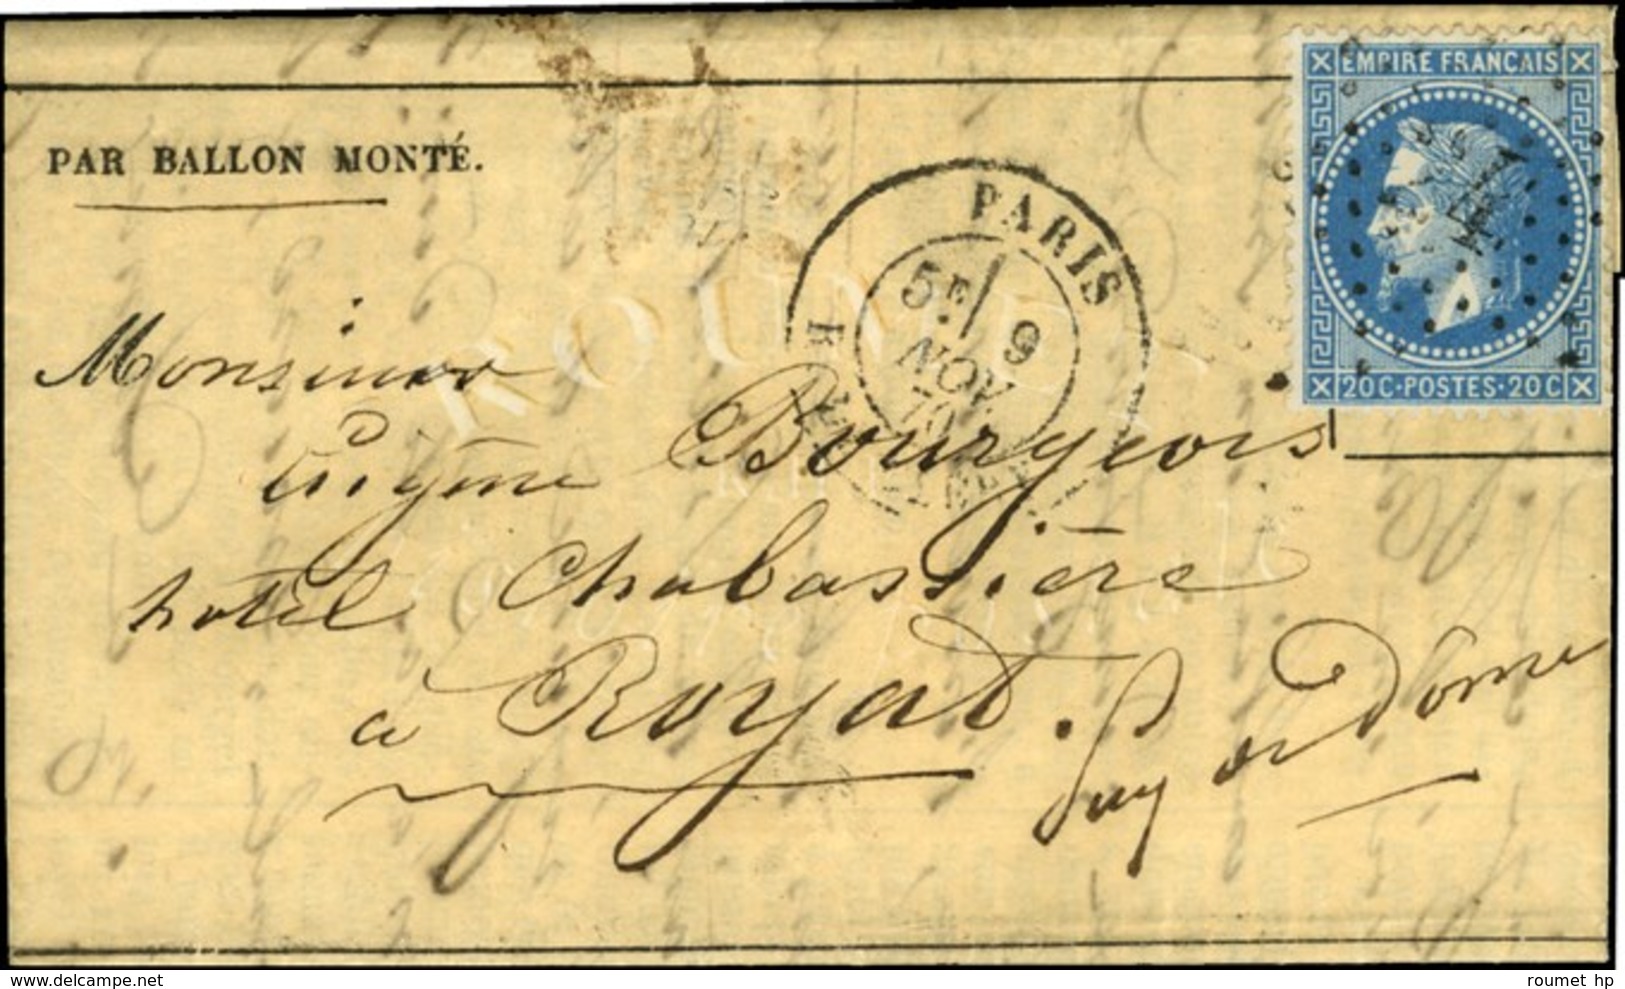 EMPIRE FRANÇAIS
PAR BALLON MONTÉ.
PARIS
5E 9
NOV
70
20C·POSTES·20C
ROUMET
Monsieur
Eugène Bourgeois
hotel Chabassière
à Royat. Puy de Dôme
roumet hp